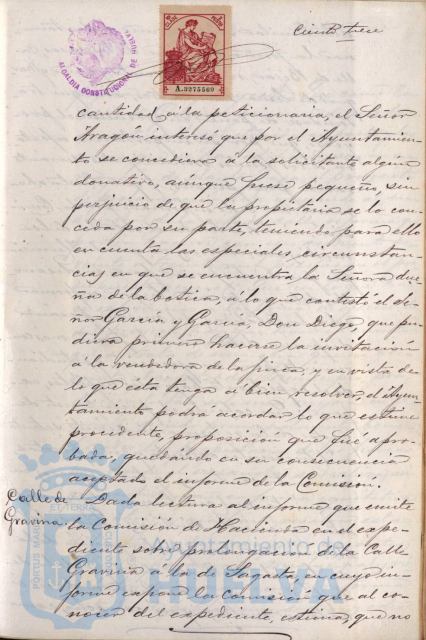 Ciento trece
ALCALDIA CONSTITUCIONAL DE HUELVA
A.3275569
cantidad á la peticionaria, el Señor
Aragón interesó que por el Ayuntamien-
to se concediera á la solicitante algún
donativo, aunque fuese pequeño, sin
perjuicio de que la propietaria se lo con-
ceda por su parte, teniendo para ello
en cuenta las especiales circunstan-
cias en que se encuentra la Señora due-
ña de la botica, á lo que contestó el Se-
ñor García y García, Don Diego, que pu-
diera primero hacerse la invitación
á la vendedora de la finca, y en vista de
lo que ésta tenga á bien resolver, el Ayun-
tamiento podrá acordar lo que estime
procedente, proposición que fué apro-
bada, quedando en su consecuencia
aceptado el informe de la Comisión.
Calle de
Gravina.
Dada lectura al informe que emite
la Comisión de Hacienda en el expe-
diente sobre prolongación de la Calle
Gravina á la de Sagasta, en cuyo in-
forme expone la Comisión que al co-
nocer del expediente, estima, que no
PORTUS MARIS
ET TERRAE
Ayuntamiento de
HUELVA